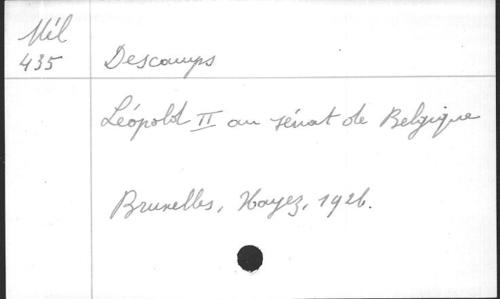 Mél
435
Descamps
Léopold II au sénat de Belgique
Bruxelles, Hayez, 1926.